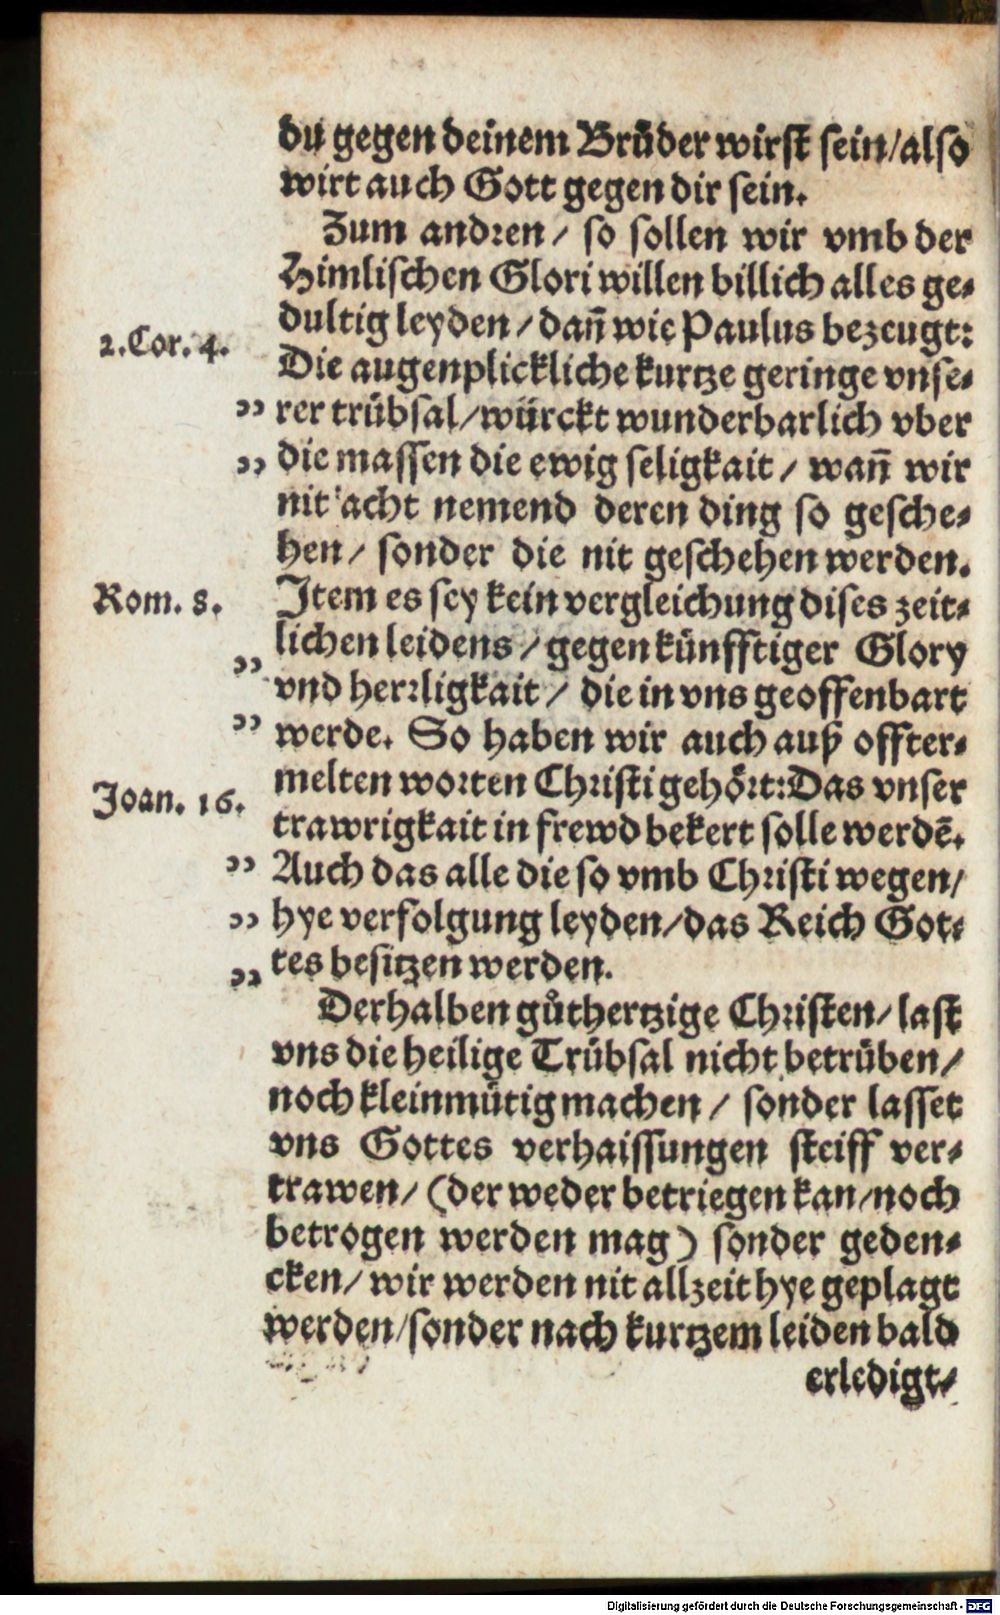 du gegen deinem Brůder wirst sein/also
wirt auch Gott gegen dir sein.
Zum andren/ so sollen wir vmb der
Himlischen Glori willen billich alles ge-
dultig leyden/ dañ wie Paulus bezeugt:
2.Cor. 4.
Die augenplickliche kurtze geringe vnse-
” rer trübsal/würckt wunderbarlich vber
” die massen die ewig seligkait/ wañ wir
nit acht nemend deren ding so gesche-
hen/ sonder die nit geschehen werden.
Rom. 8.
Item es sey kein vergleichung dises zeit-
” lichen leidens/ gegen künfftiger Glory
vnd herrligkait/ die in vns geoffenbart
” werde. So haben wir auch auß offter-
melten worten Christi gehört: Das vnser
Joan. 16.
trawrigkait in frewd bekert solle werdẽ.
” Auch das alle die so vmb Christi wegen/
” hye verfolgung leyden/das Reich Got-
” tes besitzen werden.
Derhalben gůthertzige Christen/ last
vns die heilige Trübsal nicht betrüben/
noch kleinmütig machen/ sonder lasset
vns Gottes verhaissungen steiff ver-
trawen/ (der weder betriegen kan/noch
betrogen werden mag) sonder geden-
cken/ wir werden nit allzeit hye geplagt
werden/sonder nach kurtzem leiden bald
erledigt/
Digitalisierung gefördert durch die Deutsche Forschungsgemeinschaft - DFG